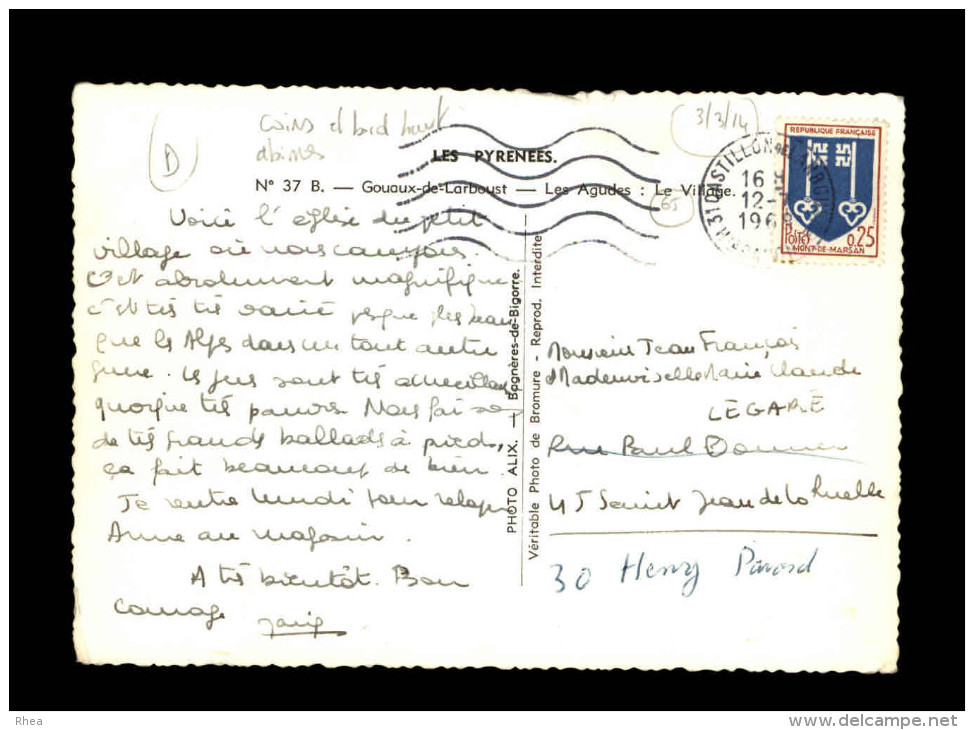 D
coins et bord haut
abimés
3/3/14
65
LES PYRENEES.
N° 37 B. — Gouaux-de-Larboust — Les Agudes : Le Village.
REPUBLIQUE FRANÇAISE
POSTES 0,25
MONT-DE-MARSAN
16 H
12-
196
Voici l'église du petit
village où nous campons.
C'est absolument magnifique
c'est très très varié presque plus beau
que les Alpes dans un tout autre
genre. Les gens sont très accueillants
quoique très pauvres. Nous faisons
de très grands ballades à pieds,
ça fait beaucoup de bien.
Je rentre lundi pour relayer
Anne au magasin.
A très bientôt. Bon
courage
PHOTO ALIX. — Bagnères-de-Bigorre.
Véritable Photo de Bromure - Reprod. Interdite
Monsieur Jean François
Mademoiselle Marie Claude
LÉGARÉ
Rue Paul Doumer
45 Saint Jean de la Ruelle
30 Henry
Rhea
www.delcampe.net